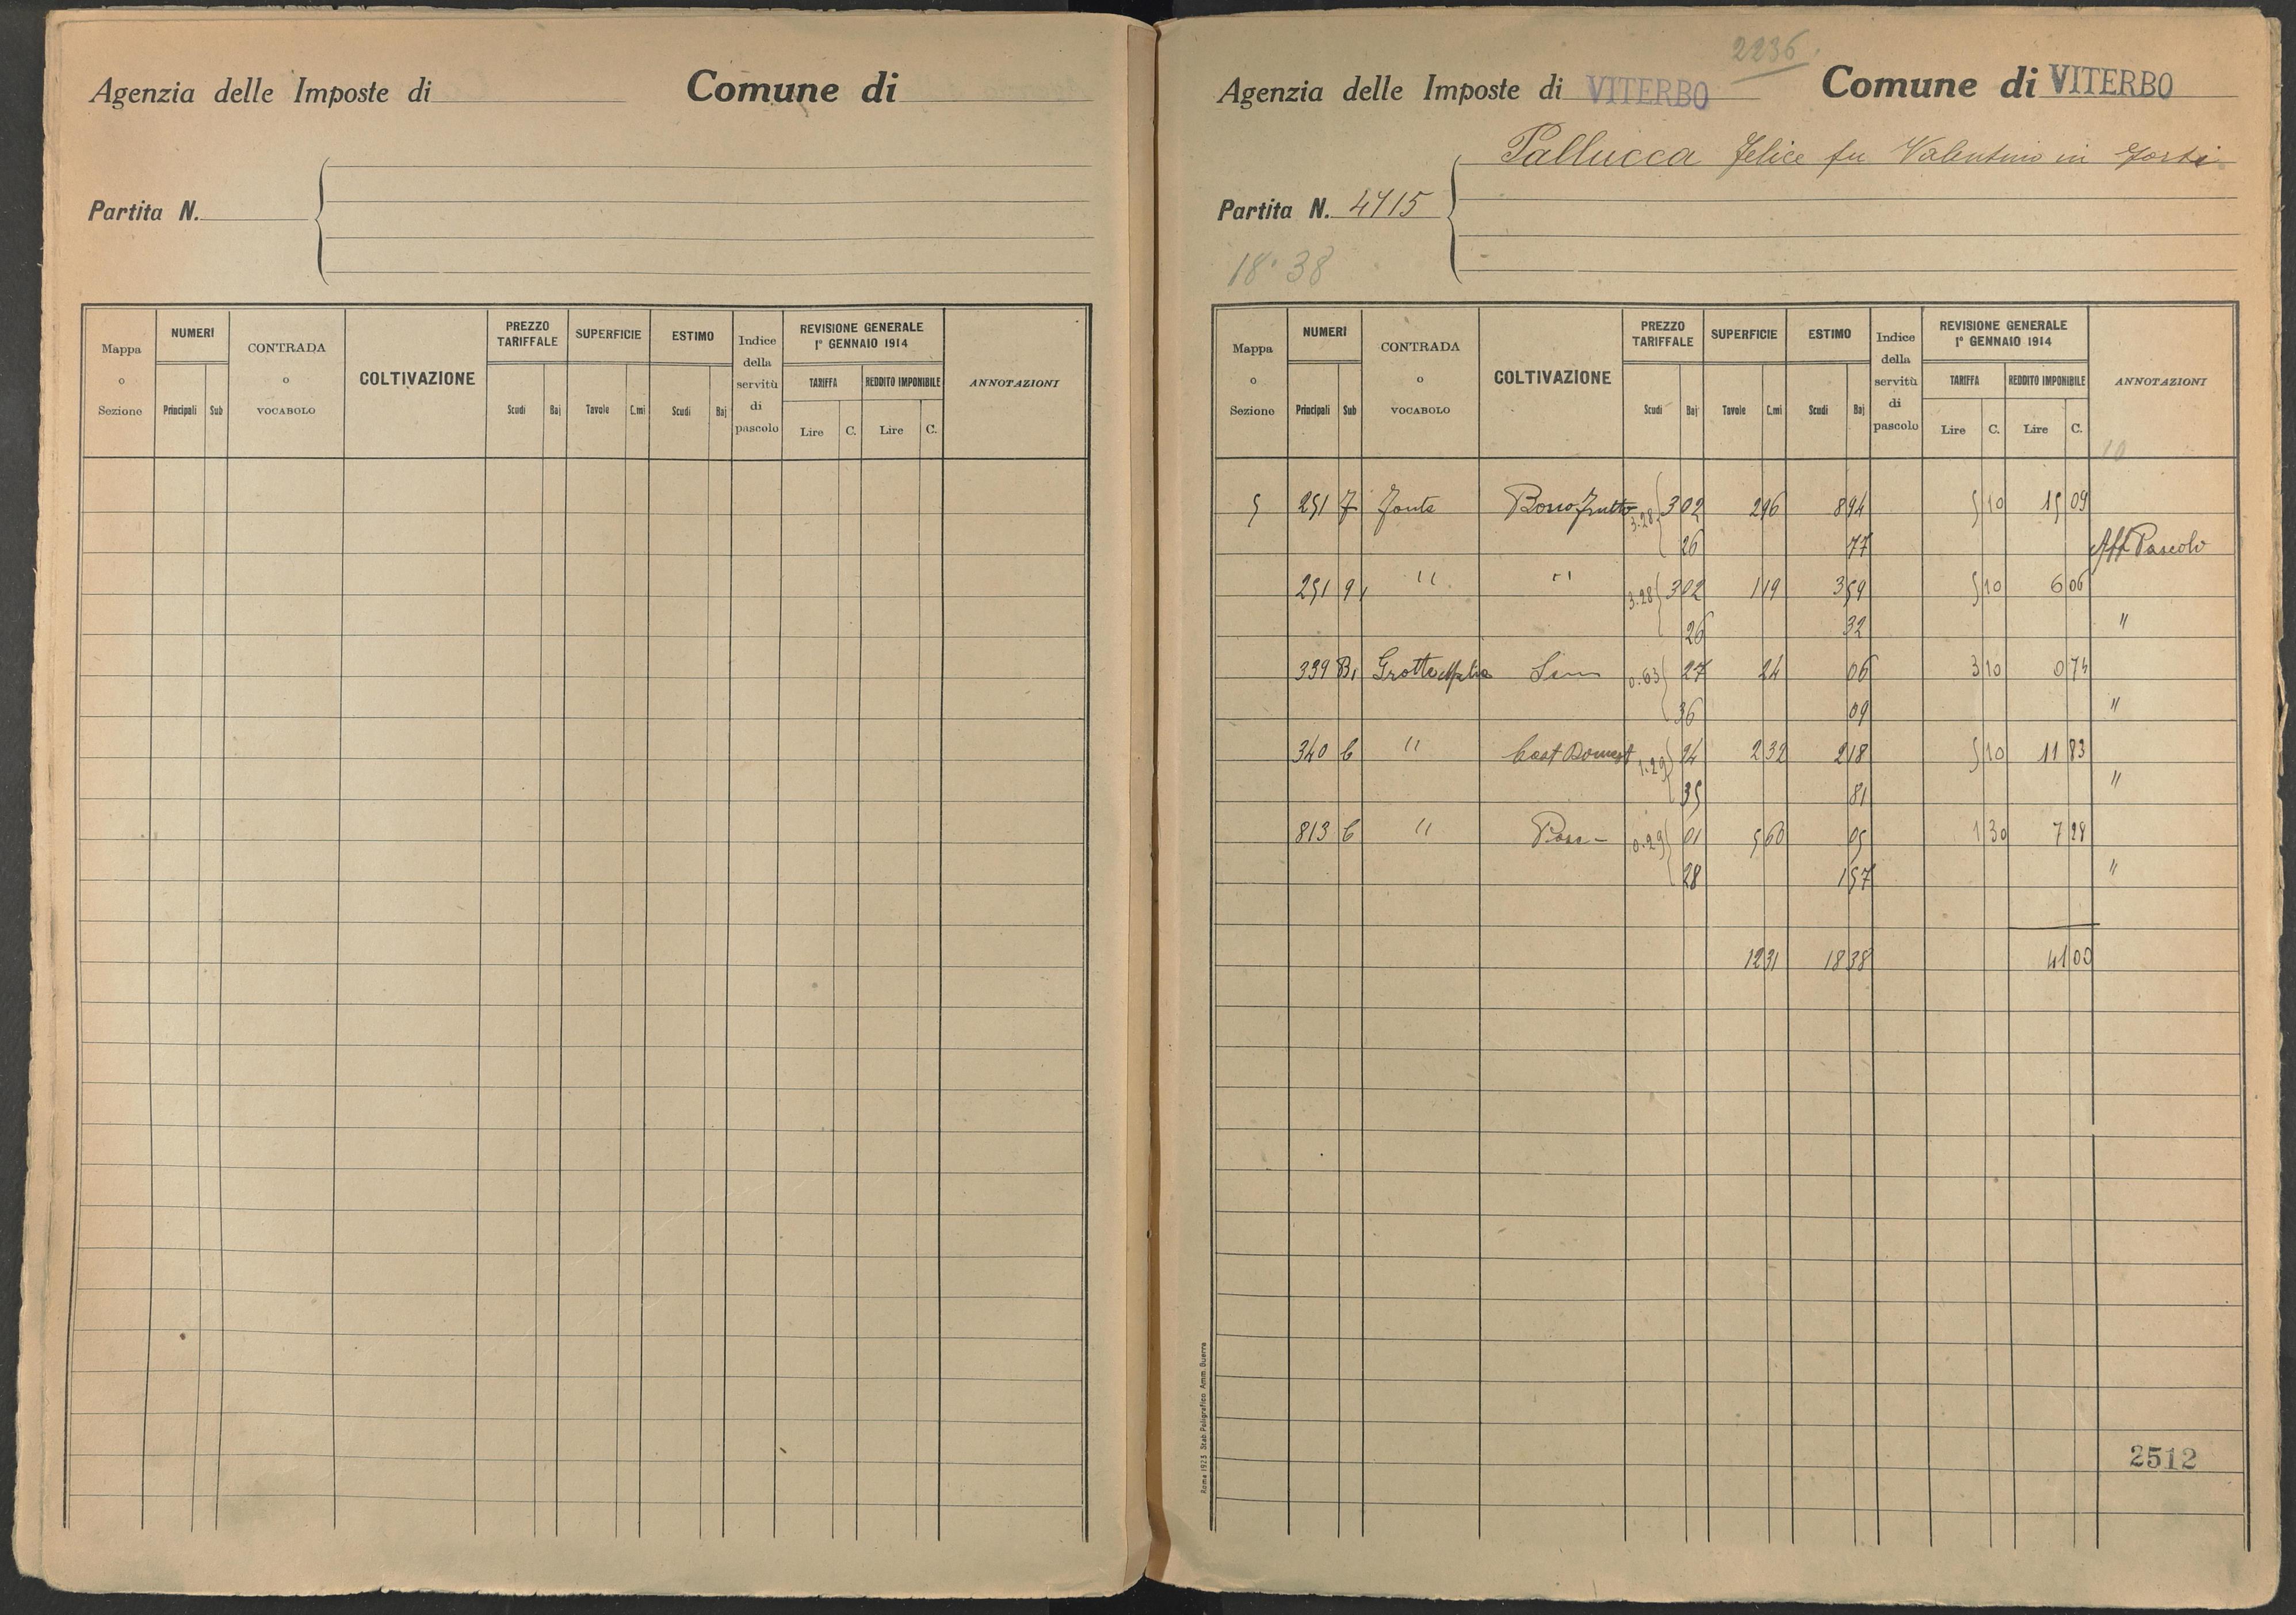 Agenzia delle Imposte di Comune di
Partita N.
Mappa o Sezione NUMERI Principali Sub CONTRADA o VOCABOLO COLTIVAZIONE PREZZO TARIFFALE Scudi Baj SUPERFICIE Tavole C.mi ESTIMO Scudi Baj Indice della servitù di pascolo REVISIONE GENERALE 1° GENNAIO 1914 TARIFFA Lire C. REDDITO IMPONIBILE Lire C. ANNOTAZIONI
2236
Agenzia delle Imposte di VITERBO Comune di VITERBO
Pallucca Felice fu Valentino in
Partita N. 4715
18.38
Mappa o Sezione NUMERI Principali Sub CONTRADA o VOCABOLO COLTIVAZIONE PREZZO TARIFFALE Scudi Baj SUPERFICIE Tavole C.mi ESTIMO Scudi Baj Indice della servitù di pascolo REVISIONE GENERALE 1° GENNAIO 1914 TARIFFA Lire C. REDDITO IMPONIBILE Lire C. ANNOTAZIONI
10
5 251 7 Fonte 3.28 3 02 2 96 8 94 5 10 15 09
26 77 Aff Pascolo
251 9 " " 3.28 3 02 1 19 3 59 5 10 6 06
26 32 "
339 B1 Grotte Sem 0.63 27 24 06 3 10 0 74
36 09 "
340 C " Cast Domest 1.29 94 2 32 2 18 5 10 11 83
35 81 "
813 C " Pasc 0.29 01 5 60 05 1 30 7 28
28 1 57 "
12 31 18 38 41 00
2512
Roma 1923 Stab. Poligrafico Amm. Guerra